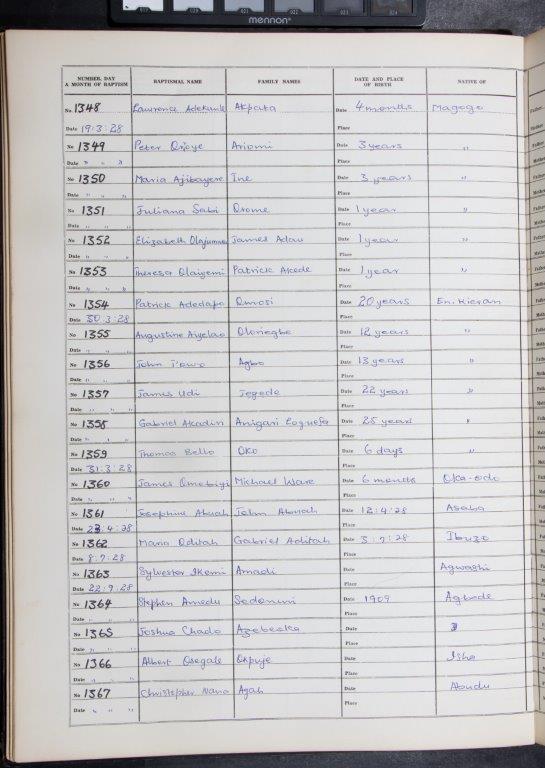 019 021 022 023 024
mennon
NUMBER, DAY & MONTH OF BAPTISM BAPTISMAL NAME FAMILY NAMES DATE AND PLACE OF BIRTH NATIVE OF
No. 1348 Lawrence Adekunle Akpata Date 4 months Magogo
Date 19:3:28 Place
No 1349 Peter Ojoye Ariomi Date 3 years "
Date " " " Place
No 1350 Maria Ajibayere Ine Date 3 years "
Date " " " Place
No 1351 Juliana Sabi Orome Date 1 year "
Date " " " Place
No 1352 Elizabeth Olajumoke James Adau Date 1 year "
Date " " " Place
No 1353 Theresa Olaiyemi Patrick Akede Date 1 year "
Date " " " Place
No 1354 Patrick Adedapo Omosi Date 20 years En. Kieran
Date 30:3:28 Place
No 1355 Augustine Aiyelao Oloriegbe Date 12 years "
Date " " " Place
No 1356 John Agbo Date 13 years "
Date " " " Place
No 1357 James Udi Jegede Date 22 years "
Date " " " Place
No 1358 Gabriel Akadiri Anigari Date 25 years "
Date " " " Place
No 1359 Thomas Bello Oko Date 6 days "
Date 31:3:28 Place
No 1360 James Omobiyi Michael Ware Date 6 months Oka-odo
Date " " " Place
No 1361 Josephine Abuah John Abuah Date 12:4:28 Asaba
Date 23:4:28 Place
No 1362 Maria Oditah Gabriel Aditah Date 3:7:28 Ibuzo
Date 8:7:28 Place
No 1363 Sylvester Ikemi Amadi Date Agwashi
Date 22:9:28 Place
No 1364 Stephen Amedu Sedonimi Date 1909 Agbede
Date " " " Place
No 1365 Joshua Chado Azebeoka Date "
Date " " " Place
No 1366 Albert Osegale Okpuje Date Isha
Date " " " Place
No 1367 Christopher Nana Agah Date Abudu
Date " " " Place